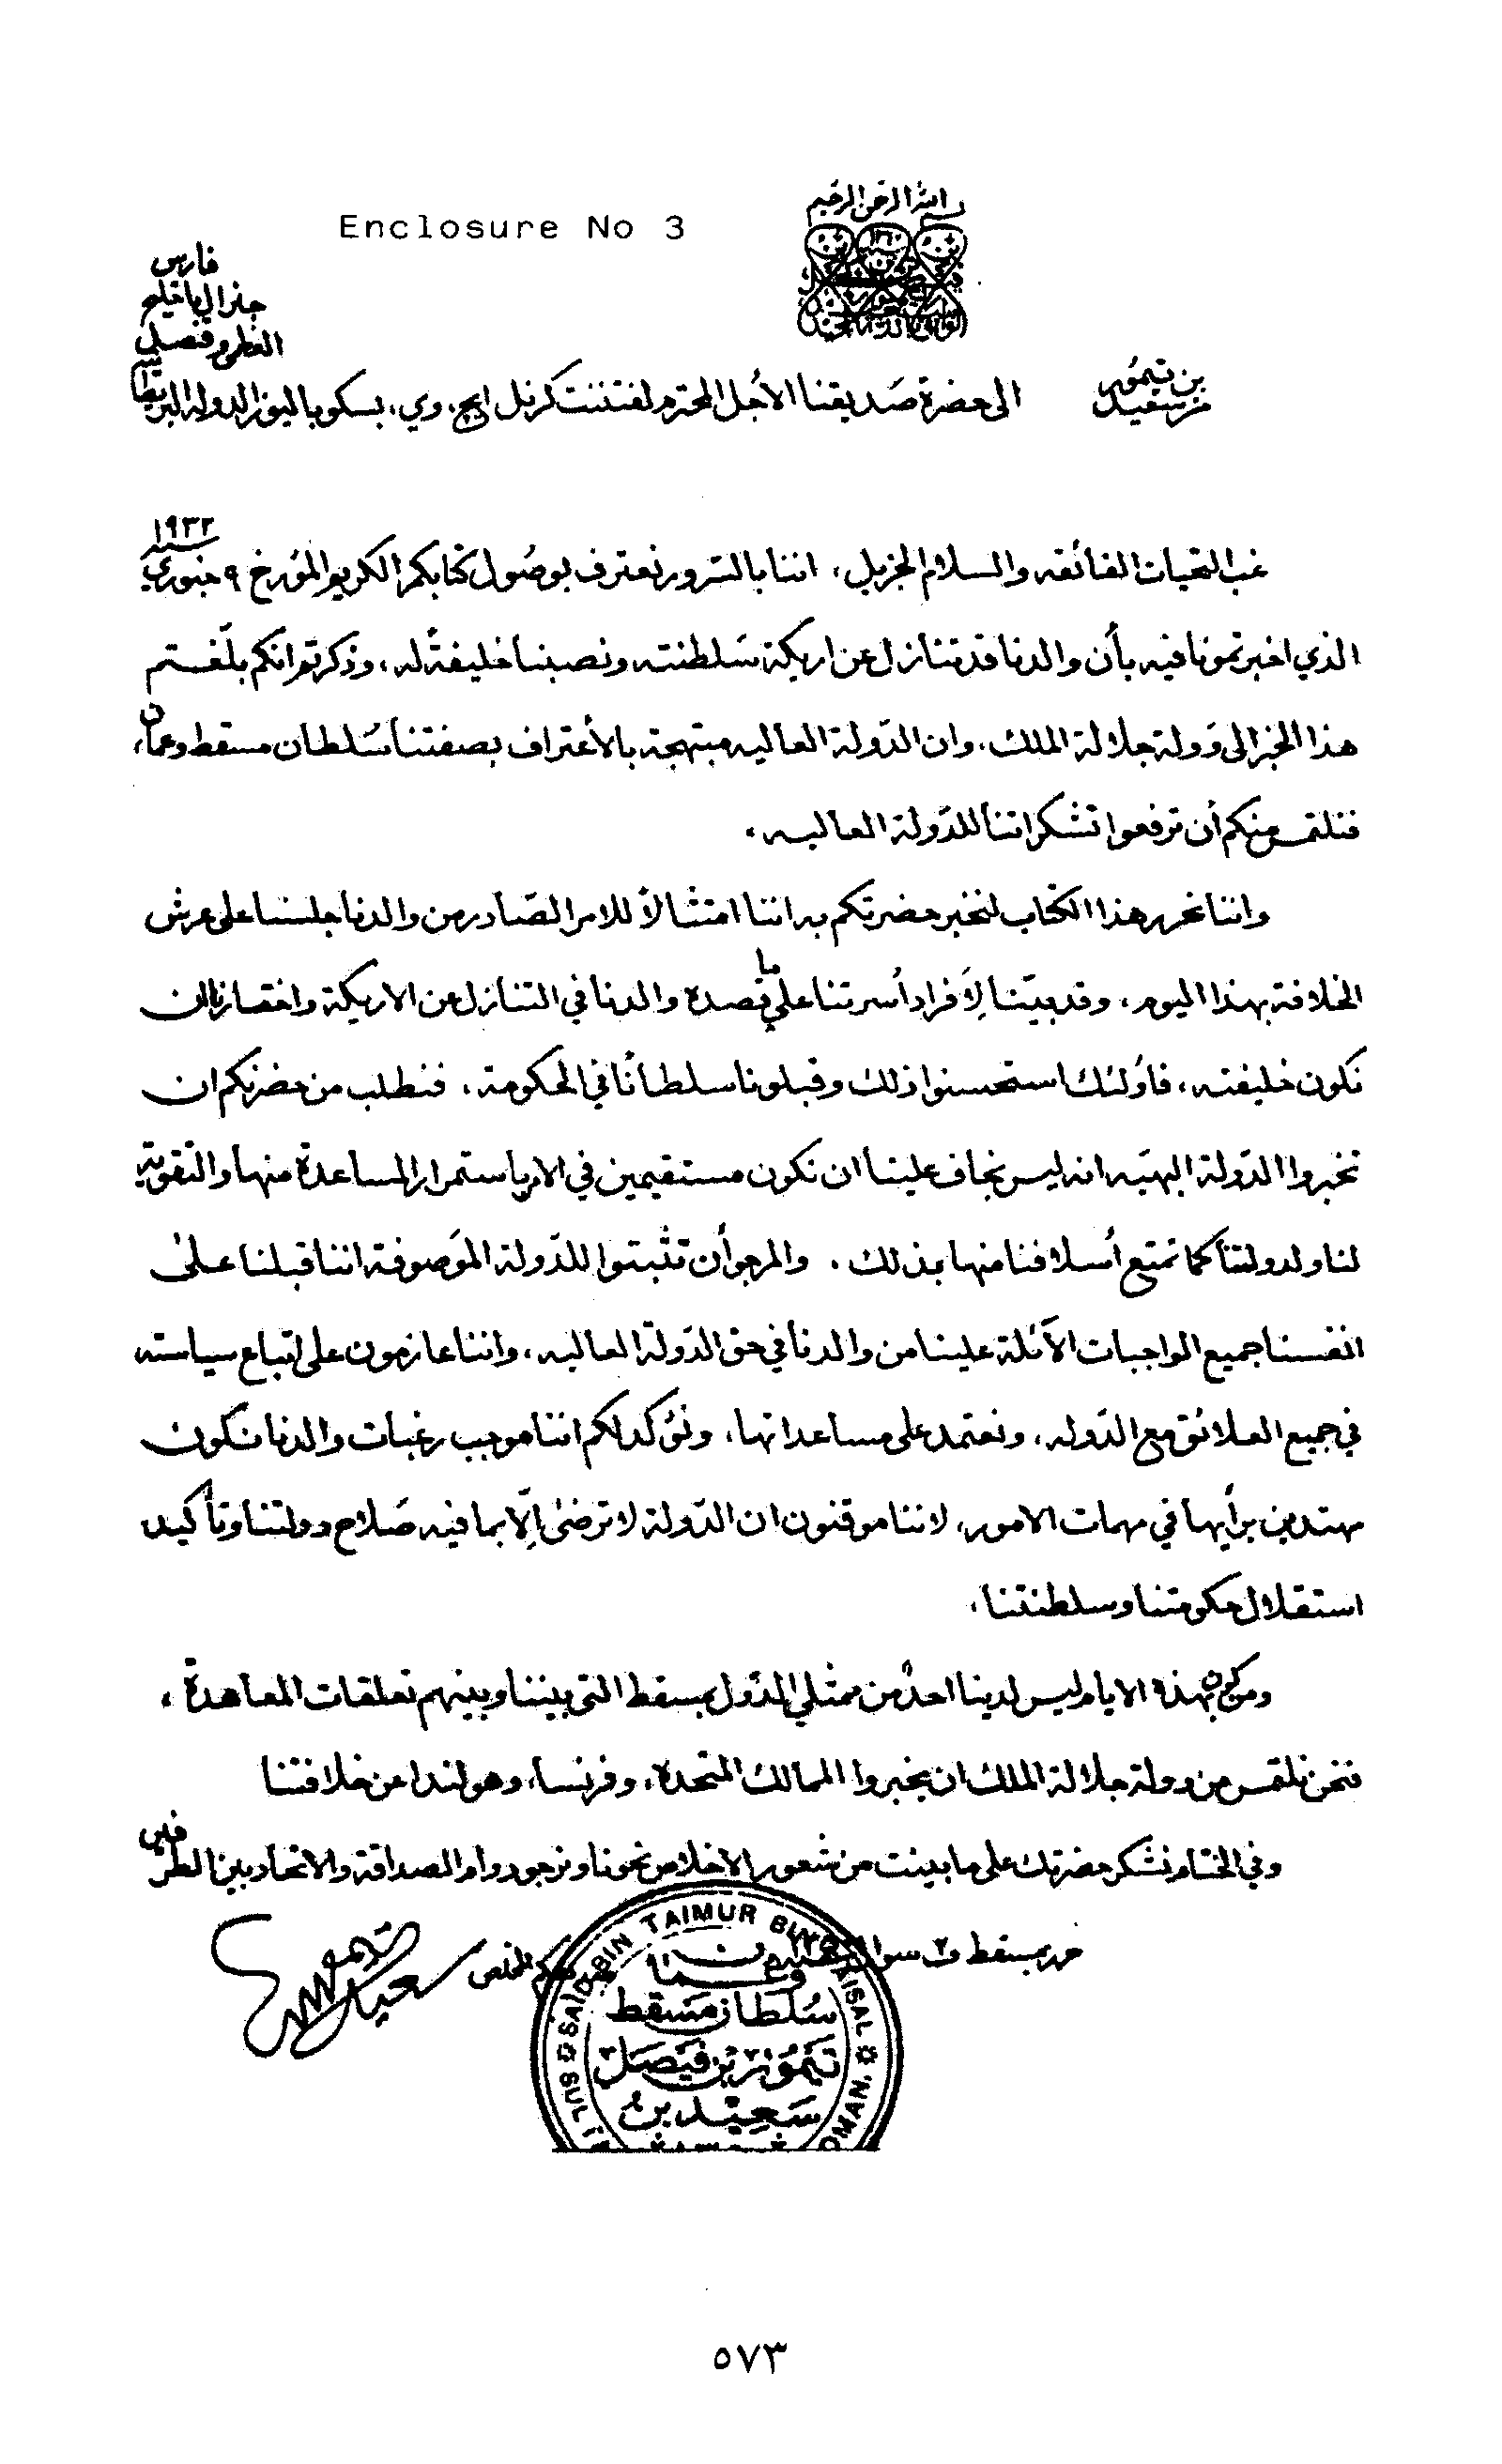 Enclosure No 3
بسم الله الرحمن الرحيم
من سعيد بن تيمور
الى حضرة صديقنا الأجل المحترم لفتننت كرنل ايچ، وي، بسكو باليوز الدولة البريطانية العظمى وقنصل جنرال باقليم فارس
غب التحيات الفائقه والسلام الجزيل، اننا بالسرور نعترف بوصول كتابكم الكريم المؤرخ ٩ جنوري سنة ١٩٣٢
الذي اخبرتمونا فيه بأن والدنا قد تنازل عن اريكة سلطنته ونصبنا خليفةً له، وذكرتم انكم بلّغتم
هذا الخبر الى دولة جلالة الملك، وان الدّولة العاليه مبتهجة بالأعتراف بصفتنا سُلطان مسقط وعمان،
فنلتمس منكم أن ترفعوا تشكراتنا للدّولة العاليه،
واننا نحرر هذا الكتاب لنخبر حضرتكم به اننا امتثالاً للامر الصّادر من والدنا جلسنا على عرش
الخلافة بهذا اليوم، وقد بيّنا لِأفراد أسرتنا على ما قصده والدنا في التنازل عن الاريكة واختصارنا ان
نكون خليفته، فأولئك استحسنوا ذلك وقبلونا سلطاناً في الحكومة، فنطلب من حضرتكم ان
تخبروا الدّولة البهيّه انه ليس بخاف علينا ان نكون مستقيمين في الامر باستمرار المساعدة منها والتقوية
لنا ولدولتنا كما تمتع أسلافنا منها بذلك، والمرجو أن تثبتوا للدّولة الموَصوفة اننا قبلنا على
انفسنا جميع الواجبات الآئلة علينا من والدنا في حق الدّولة العاليه، واننا عازمون على اتباع سياسته
في جميع العلائق مع الدّوله، ونعتمد على مساعداتها، ونؤكد لكم اننا موجب رغبات والدنا نكون
مهتدين برأيها في مهمات الامور، لاننا موقنون ان الدّولة لا ترضىٰ إلّا بما فيه صَلاح دولتنا وتأكيد
استقلال حكومتنا وسلطنتنا،
ومن كون بهذه الايام ليس لدينا احدٌ من ممثلي الدّول بمسقط التى بيننا وبينهم تعلقات المعاهدة،
فنحن نلتمس من دولة جلالة الملك ان يخبروا الممالك المتحدة، وفرنسا، وهولندا عن خلافتنا
وفي الختام نشكر حضرتك على ما بينت من شعور الاخلاص نحونا ونرجو دوام الصداقة والاتحاد بين الطرفين
حرر بمسقط في ٢ شوال
المخلص
سعيد بن تيمور
SAID BIN TAIMUR BIN FAISAL
SUL OMAN.
وعمان
سُلطان مسَقط
تيمُور بن فيصَل
سَعِيْد بن
٥٧٣